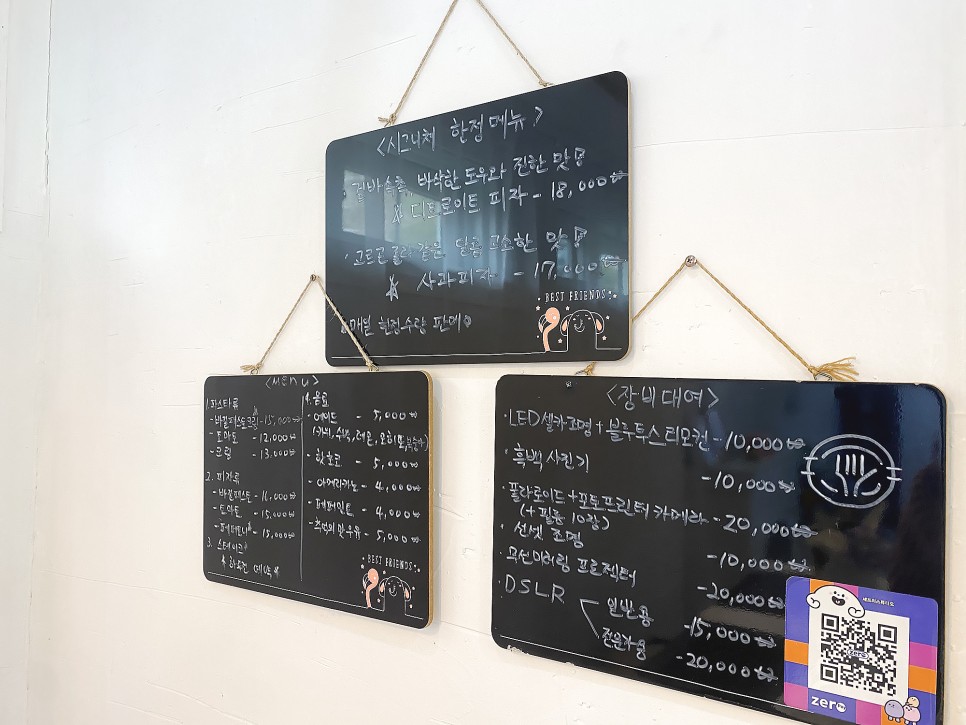 <시그니처 한정메뉴>
· 겉바속촉, 바삭한 도우와 진한 맛!
☆ 디트로이트 피자 - 18,000₩
· 고르곤졸라 같은 달콤 고소한 맛!
☆ 사과피자 - 17,000₩
매일 한정수량 판매
BEST FRIENDS
<Menu>
1. 파스타류
- 바질페스토크림 - 15,000₩
- 토마토 - 12,000₩
- 크림 - 13,000₩
2. 피자류
- 바질페스토 - 16,000₩
- 토마토 - 15,000₩
- 페퍼로니 - 15,000₩
3. 스테이크
4. 음료
- 에이드 - 5,000₩
- 핫초코 - 5,000₩
- 아메리카노 - 4,000₩
- 페퍼민트 - 4,000₩
- 추억의 맛우유 - 5,000₩
BEST FRIENDS
<장비대여>
· LED셀카조명 + 블루투스리모컨 - 10,000₩
· 흑백사진기 - 10,000₩
· 폴라로이드 + 포토프린터 카메라 - 20,000₩
(+필름 10장)
· 선셋 조명 - 10,000₩
· 무선미러링 프로젝터 - 20,000₩
· DSLR
일반용 - 15,000₩
전문가용 - 20,000₩
zero